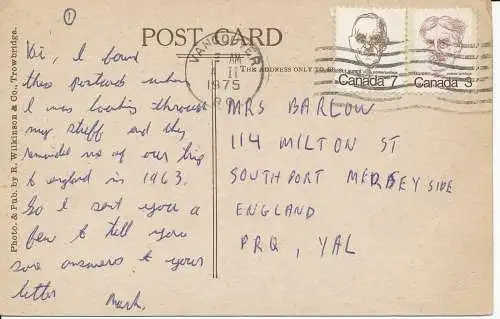 ①
POST CARD
THE ADDRESS ONLY TO BE
VANCOUVER
AM
II
1975
Canada 7
Canada 3
Photo. & Pub. by R. Wilkinson & Co., Trowbridge.
Hi, I found
these postcards when
I was looking through
my stuff and they
reminded me of our trip
to england in 1963.
So I sent you a
few to tell you
some answers to your
letter
Mark.
MRS BARLOW
114 MILTON ST
SOUTHPORT MERSEYSIDE
ENGLAND
PRQ, YAL